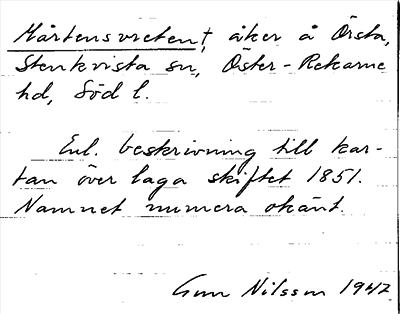 Mårtensvreten†, åker å Örsta,
Stenkvista sn, Öster-Rekarne
hd, Söd l.
Enl. beskrivning till kar-
tan över laga skiftet 1851.
Namnet numera okänt.
Gun Nilsson 1947